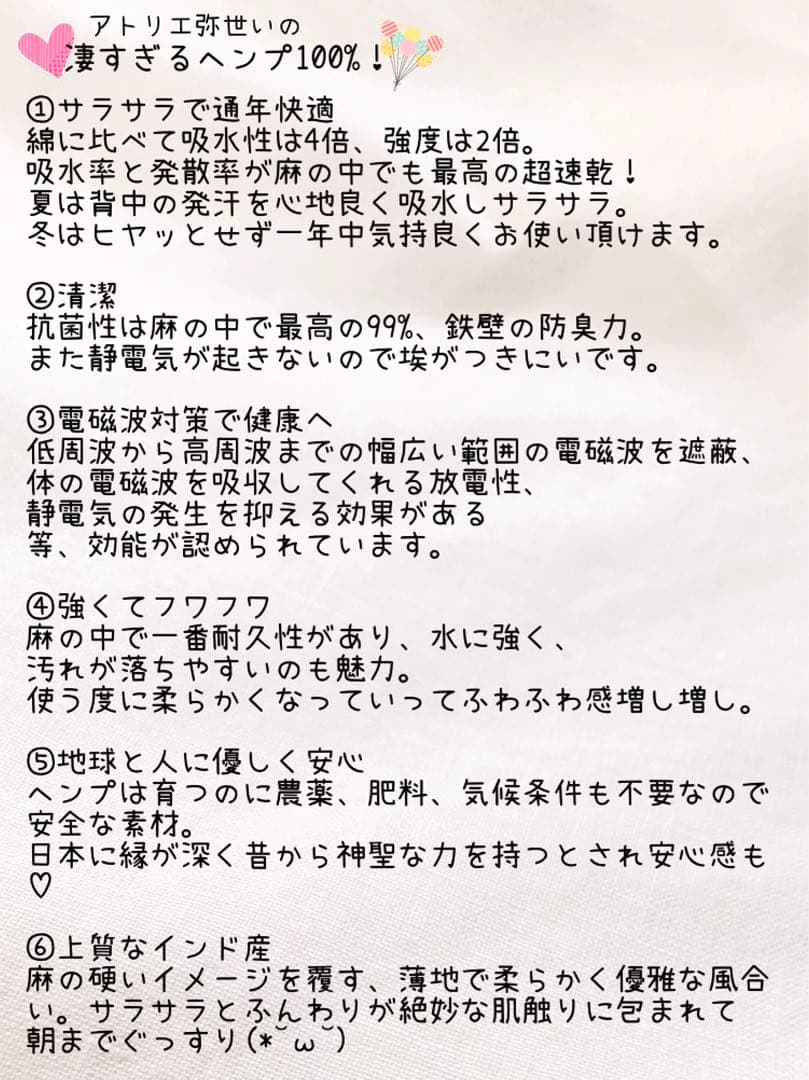 アトリエ弥せいの
凄すぎるヘンプ100%!
①サラサラで通年快適
綿に比べて吸水性は4倍、強度は2倍。
吸水率と発散率が麻の中でも最高の超速乾!
夏は背中の発汗を心地良く吸水しサラサラ。
冬はヒヤッとせず一年中気持良くお使い頂けます。
②清潔
抗菌性は麻の中で最高の99%、鉄壁の防臭力。
また静電気が起きないので埃がつきにいです。
③電磁波対策で健康へ
低周波から高周波までの幅広い範囲の電磁波を遮蔽、
体の電磁波を吸収してくれる放電性、
静電気の発生を抑える効果がある
等、効能が認められています。
④強くてフワフワ
麻の中で一番耐久性があり、水に強く、
汚れが落ちやすいのも魅力。
使う度に柔らかくなっていってふわふわ感増し増し。
⑤地球と人に優しく安心
ヘンプは育つのに農薬、肥料、気候条件も不要なので
安全な素材。
日本に縁が深く昔から神聖な力を持つとされ安心感も
♡
⑥上質なインド産
麻の硬いイメージを覆す、薄地で柔らかく優雅な風合
い。サラサラとふんわりが絶妙な肌触りに包まれて
朝までぐっすり(*˘ω˘)